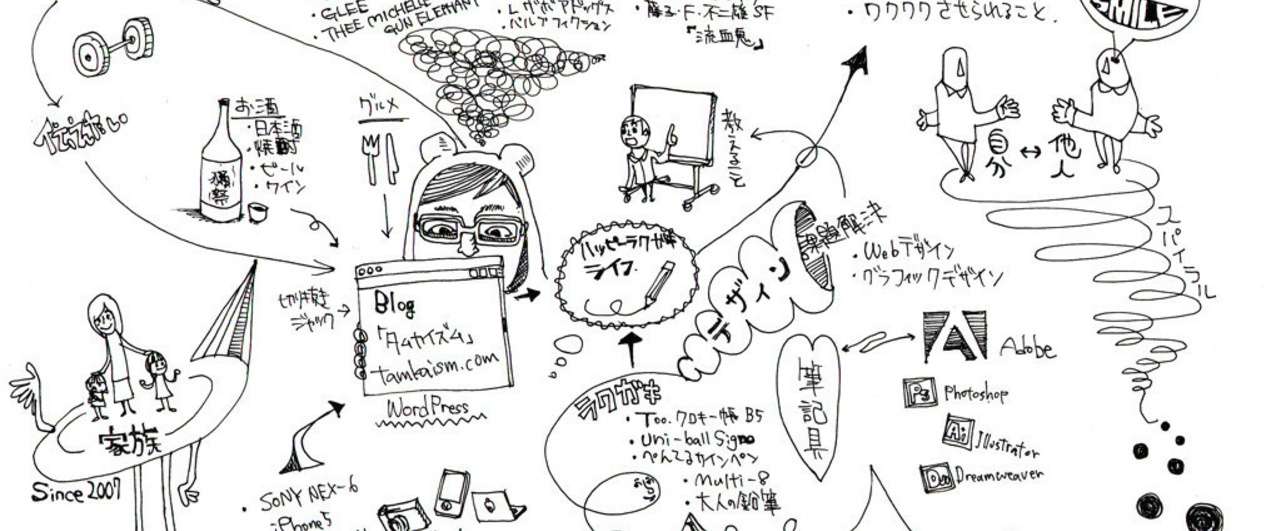 ・GLEE
・THEE MICHELLE
GUN ELEPHANT
・パルプフィクション
・藤子・F・不二雄SF
「流血鬼」
・ワクワクさせられること.
SMILE
お酒
・日本酒
・焼酎
・ビール
・ワイン
獺祭
グルメ
教えること
自分 ↔ 他人
スパイラル
ハッピーラクガキ
ライフ.
デザイン
課題解決
・Webデザイン
・グラフィックデザイン
切り抜き
ジャック
Blog
「タムカイズム」
tamkaism.com
WordPress
家族
Since 2007
ラクガキ
・Too.クロッキー帳 B5
・uni-ball Signo
・ぺんてるサインペン
・Multi-8
・大人の鉛筆
筆記具
Adobe
Ps Photoshop
Ai Illustrator
Dw Dreamweaver
・SONY NEX-6
iPhone5